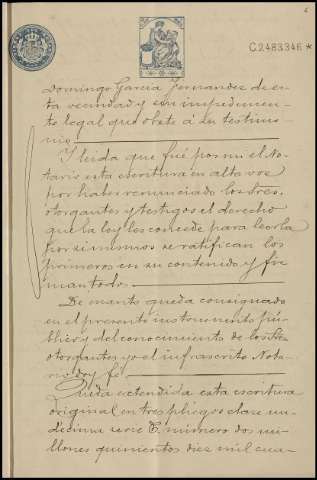 6
C2483346*
Domingo García Fernandez de es-
ta vecindad y sin impedimen-
to legal que obste á su testimo-
nio.
Y leida que fué por mi el No-
tario esta escritura en alta voz
por haber renunciado los Sres.
otorgantes y testigos el derecho
que la ley les concede para leerla
por si mismos se ratifican los
primeros en su contenido y fir-
man todos.
De cuanto queda consignado
en el presente instrumento pú-
blico y del conocimiento de los Sres
otorgantes yo el infrascrito Nota-
rio doy fé
Queda extendida esta escritura
original en tres pliegos clase un-
décima serie C, número dos mi-
llones quinientos diez mil cua-